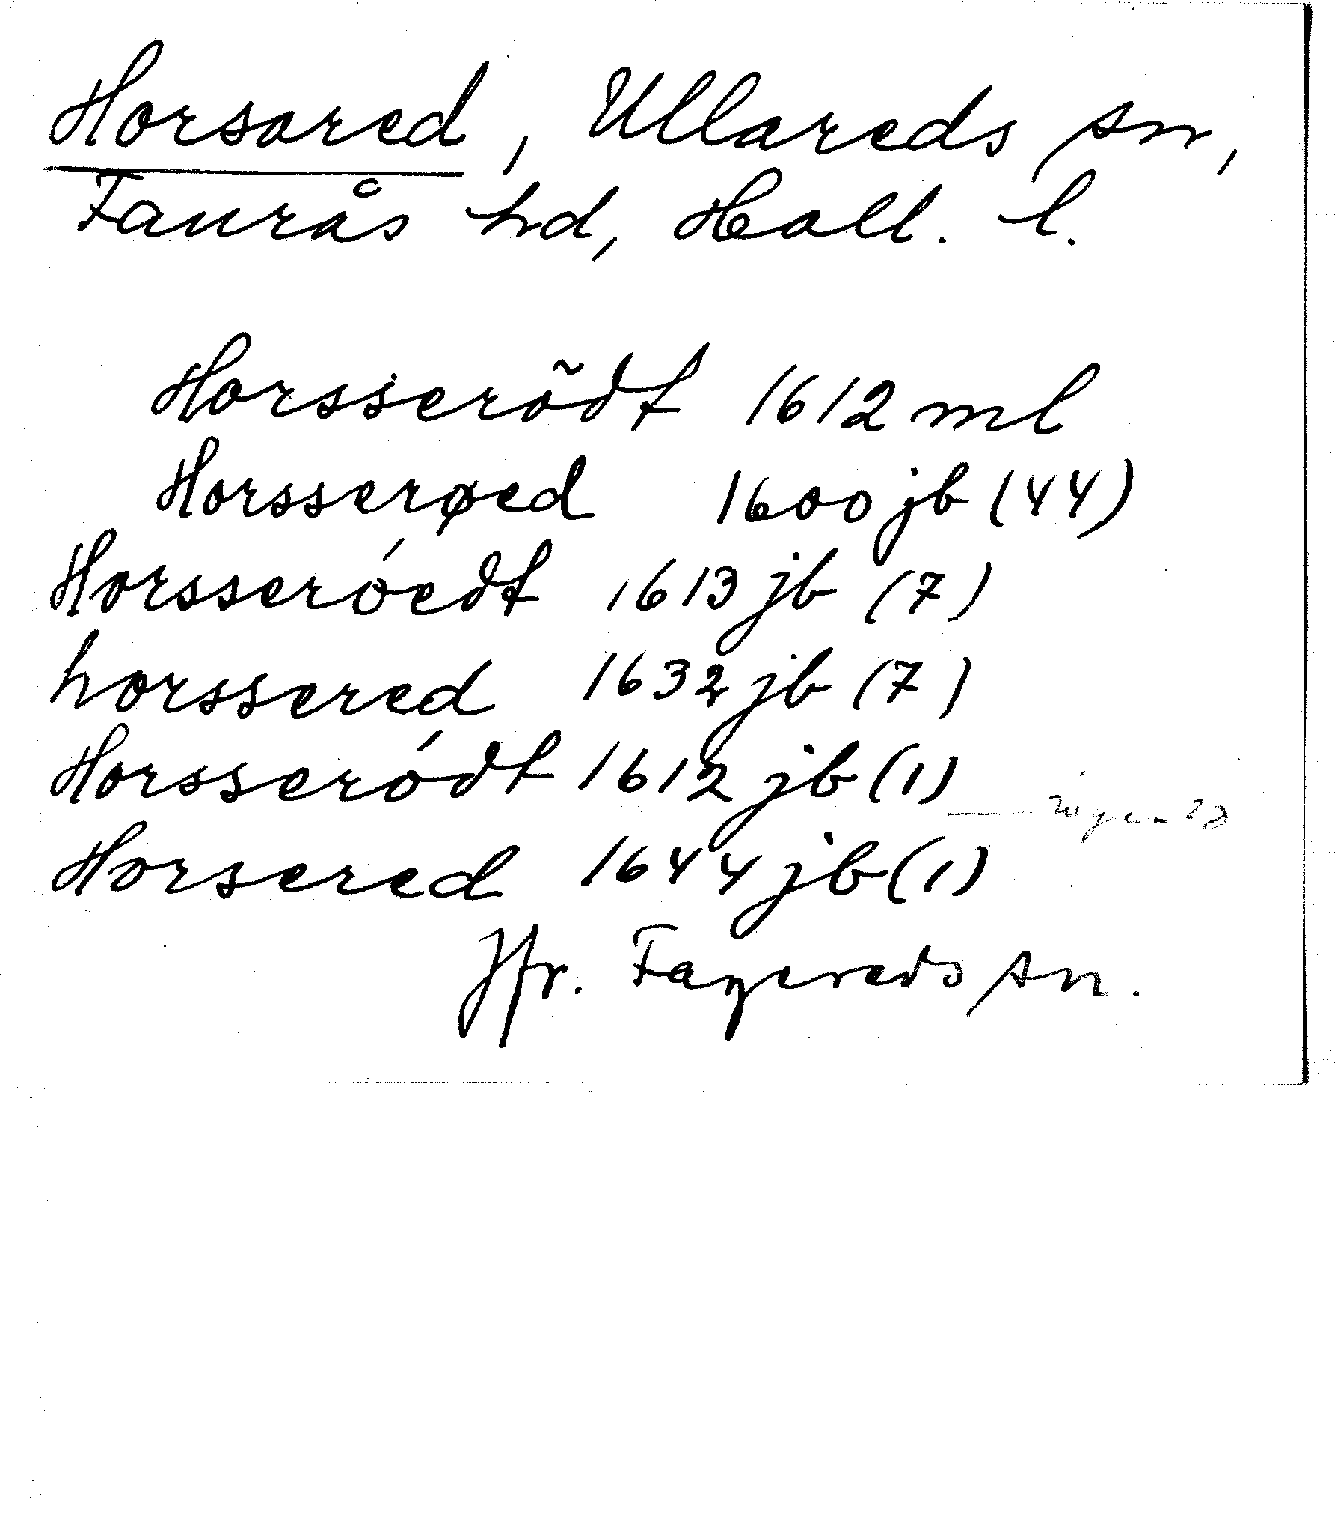 Horsared, Ullareds sn,
Faurås hd, Hall. l.
Horsserõdt 1612 ml
Horsserøed 1600 jb (44)
Horsseróedt 1613 jb (7)
horssered 1632 jb (7)
Horsseródt 1612 jb (1)
Horsered 1644 jb (1)
Jfr. Fagereds sn.